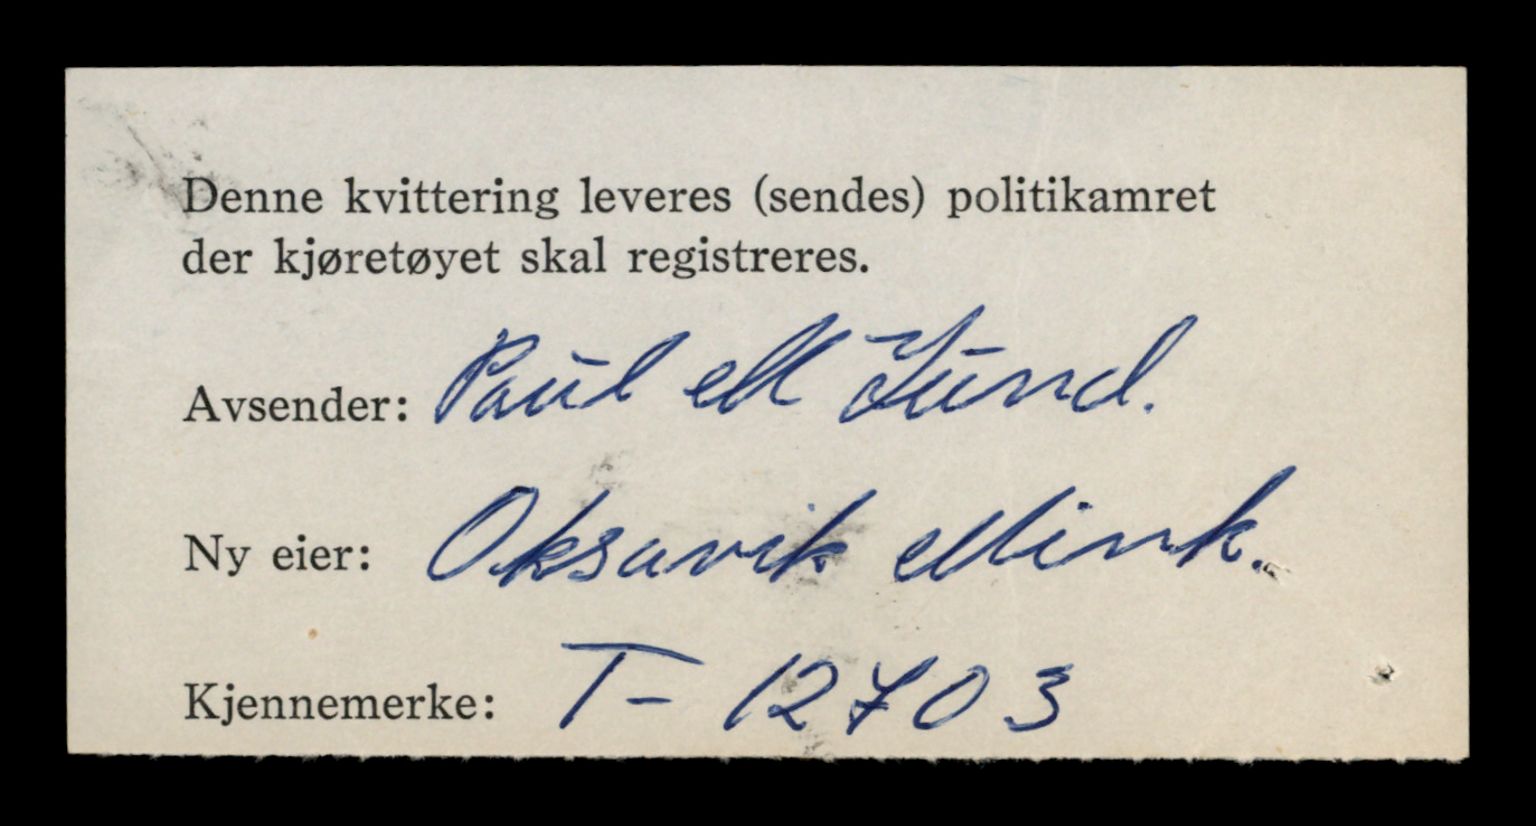 Denne kvittering leveres (sendes) politikamret
der kjøretøyet skal registreres.
Avsender: Paul M
Ny eier: Oksavik Mink.
Kjennemerke: T- 12703